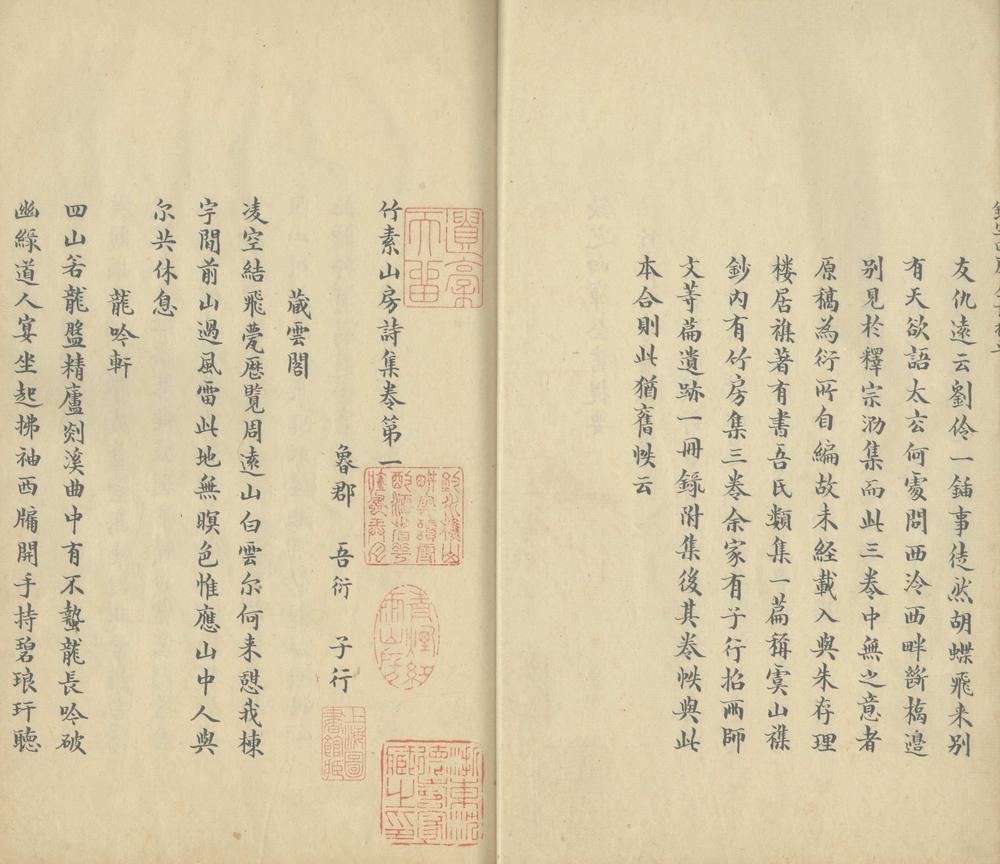 友仇遠云劉伶一鍤事徒然胡蝶飛来别
有天欲語太玄何處問西泠西畔斷橋邉
别見於釋宗泐集而此三卷中無之意者
原稿為衍所自編故未經載入與朱存理
楼居襍著有書吾氏類集一篇稱虞山襍
鈔内有竹房集三卷余家有子行招雨師
文䓁篇遺跡一冊錄附集後其卷帙與此
本合則此猶舊帙云
竹素山房詩集卷第一
魯郡 吾衍 子行
蔵雲閣
凌空結飛甍歴覧周遠山白雲尔何来憇我棟
宇間前山過風雷此地無暝色惟應山中人與
尔共休息
龍吟軒
四山若龍盤精廬剡溪曲中有不蟄龍長吟破
幽綠道人宴坐起拂袖西牖開手持碧琅玕聽
上海圖書館蔵